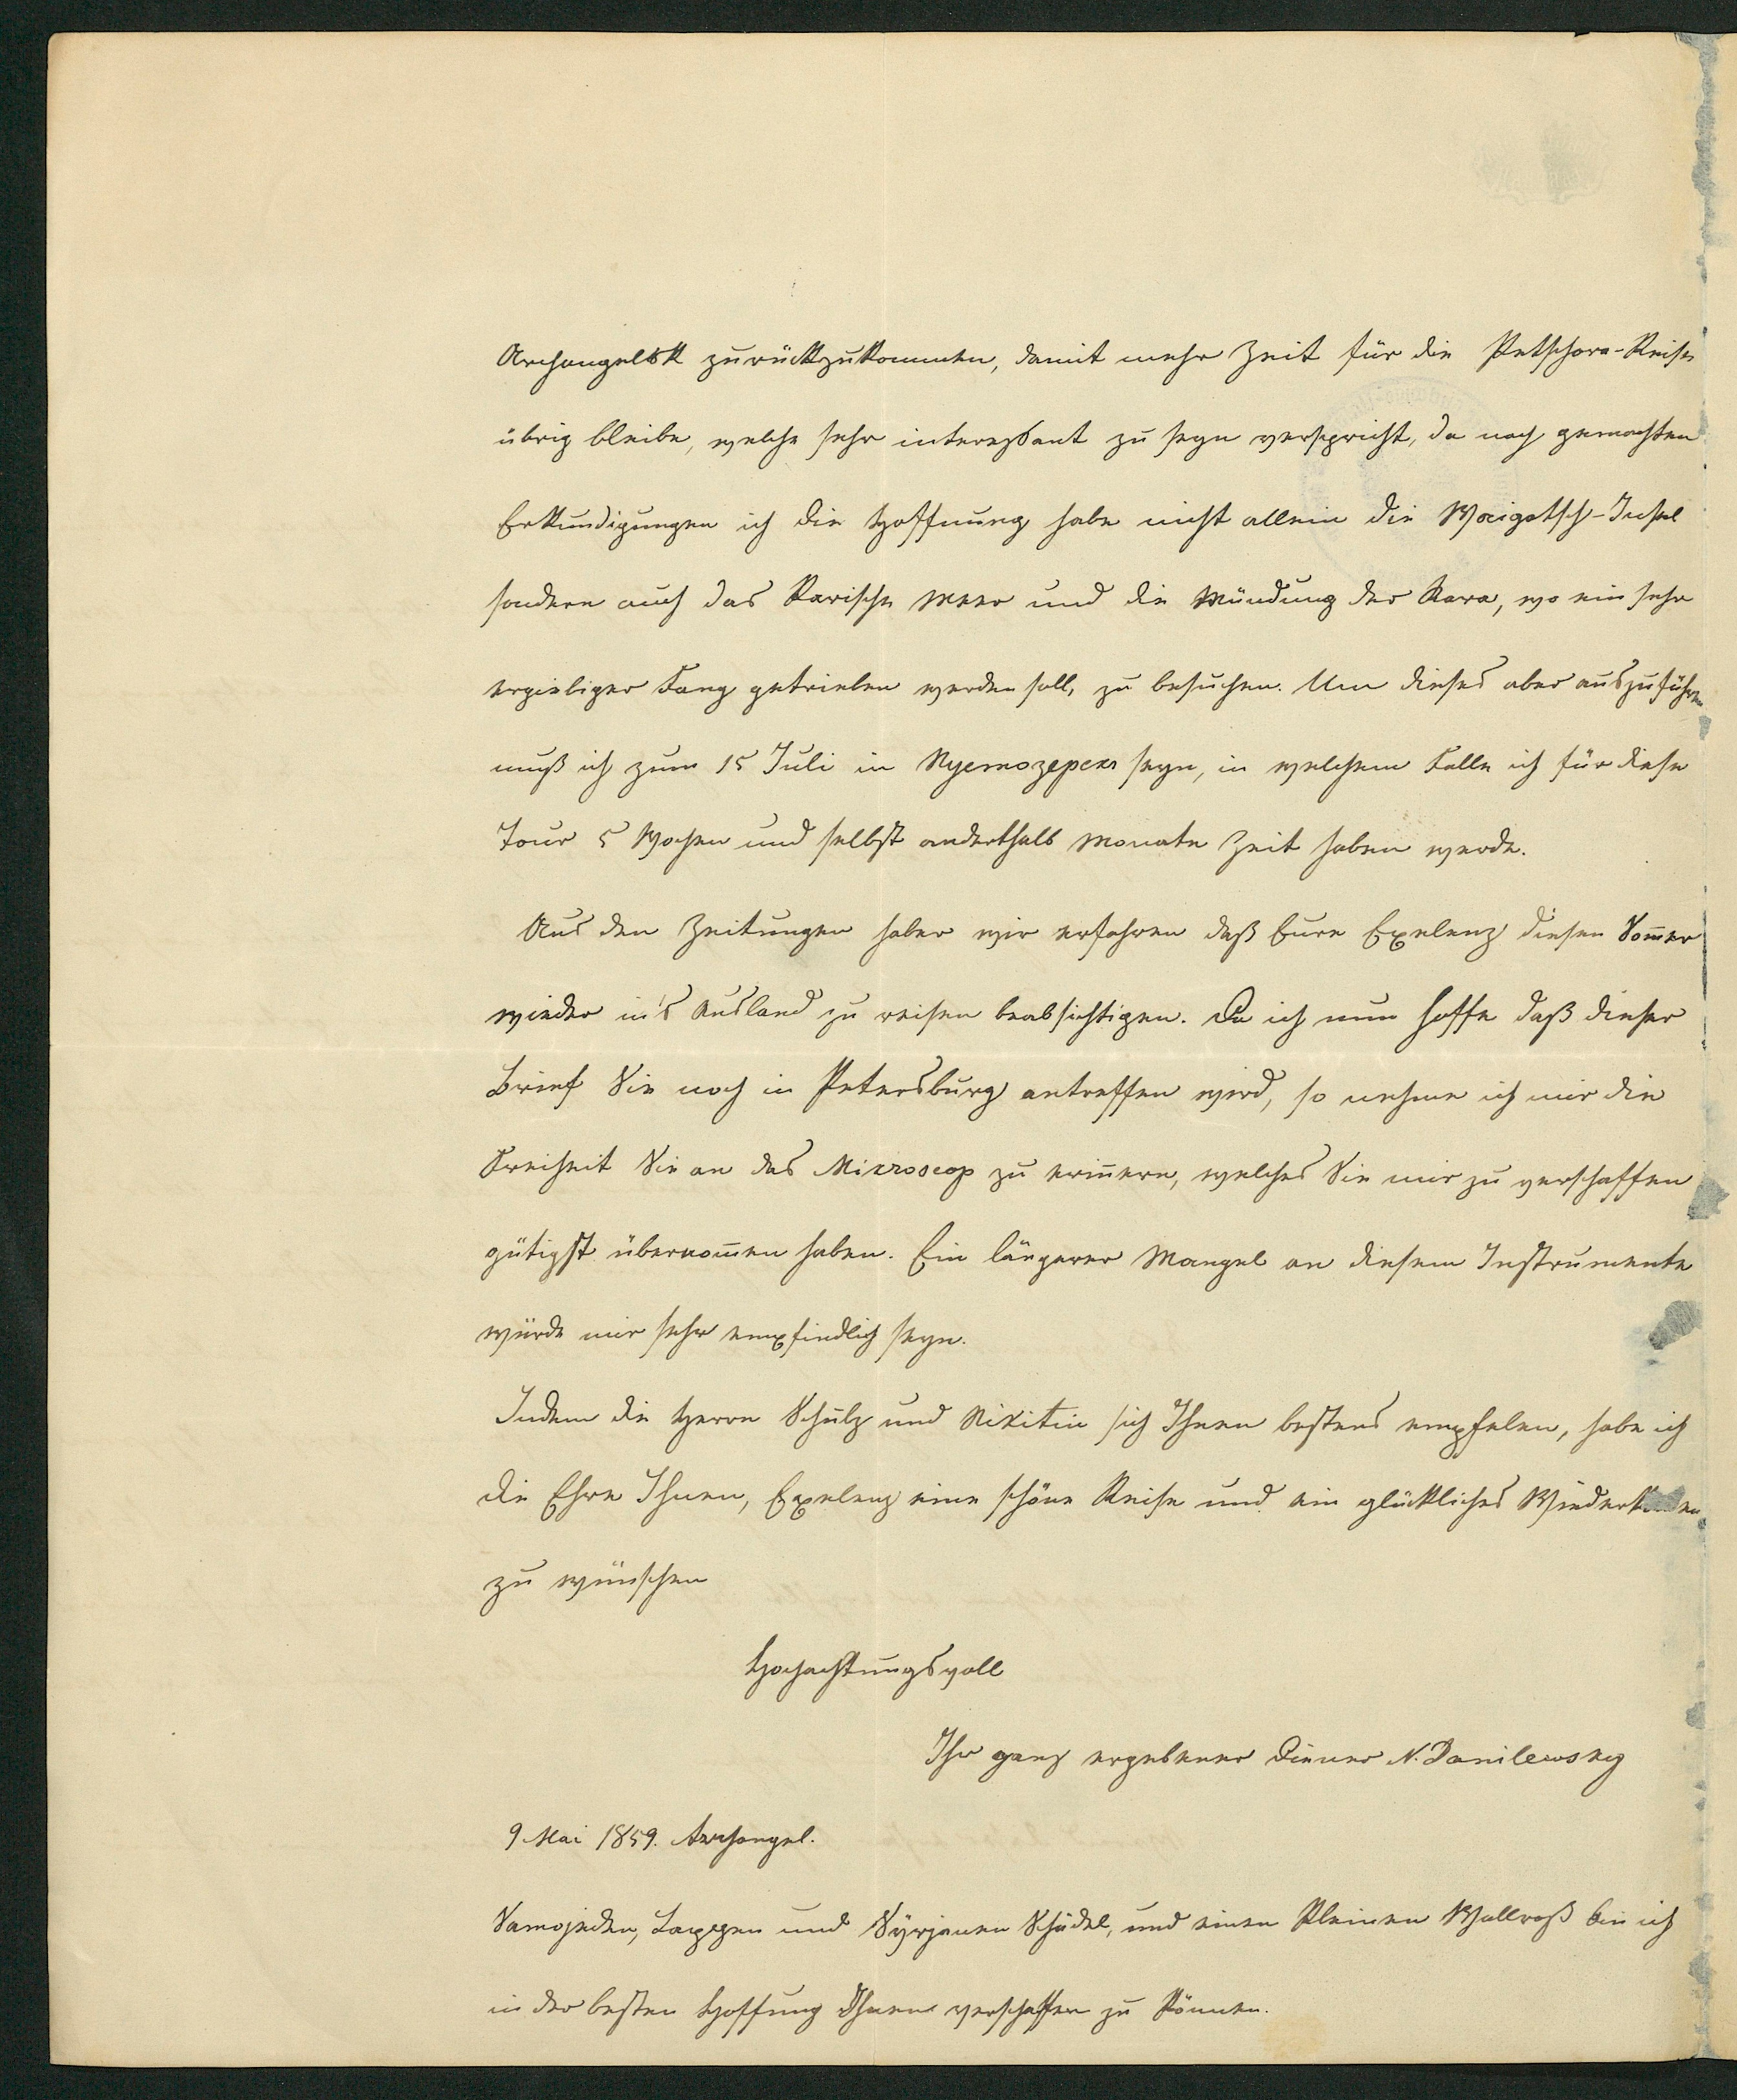 Archangelsk zurückzukommen, damit mehr Zeit für die Petschora-Reise
übrig bleibe, welche sehr interessant zu seyn verspricht, da nach gemachten
Erkundigungen ich die Hoffnung habe nicht allein die Waigatsch-Insel
sondern auch das Karische Meer und die Mündung der Kara, wo ein sehr
ergiebiger Fang getrieben werden soll, zu besuchen. Um dieses aber auszuführen
muß ich zum 15 Juli in Пустозерскъ seyn, in welchem Falle ich für diese
Tour 5 Wochen und selbst anderthalb Monate Zeit haben werde.
Aus den Zeitungen haben wir erfahren daß Eure Exelenz diesen Som̄er
wieder in's Ausland zu reisen beabsichtigen. Da ich nun hoffe daß dieser
Brief Sie noch in Petersburg antreffen wird, so nehme ich mir die
Freiheit Sie an das Mikroscop zu erin̄ern, welches Sie mir zu verschaffen
gütigst übernom̄en haben. Ein längerer Mangel an diesem Instrumente
würde mir sehr empfindlich seyn.
Indem die Herrn Schulz und Nikitin sich Ihnen bestens empfelen, habe ich
die Ehre Ihnen, Exelenz eine schöne Reise und ein glückliches
zu wünschen
Hochachtungsvoll
Ihr ganz ergebener Diener N. Danilewsky
9 Mai 1859. Archangel.
Samojeden, Lappen und Syrjänen Schädel, und einen kleinen Wallroß bin ich
in der besten Hoffung Ihnen verschaffen zu können.